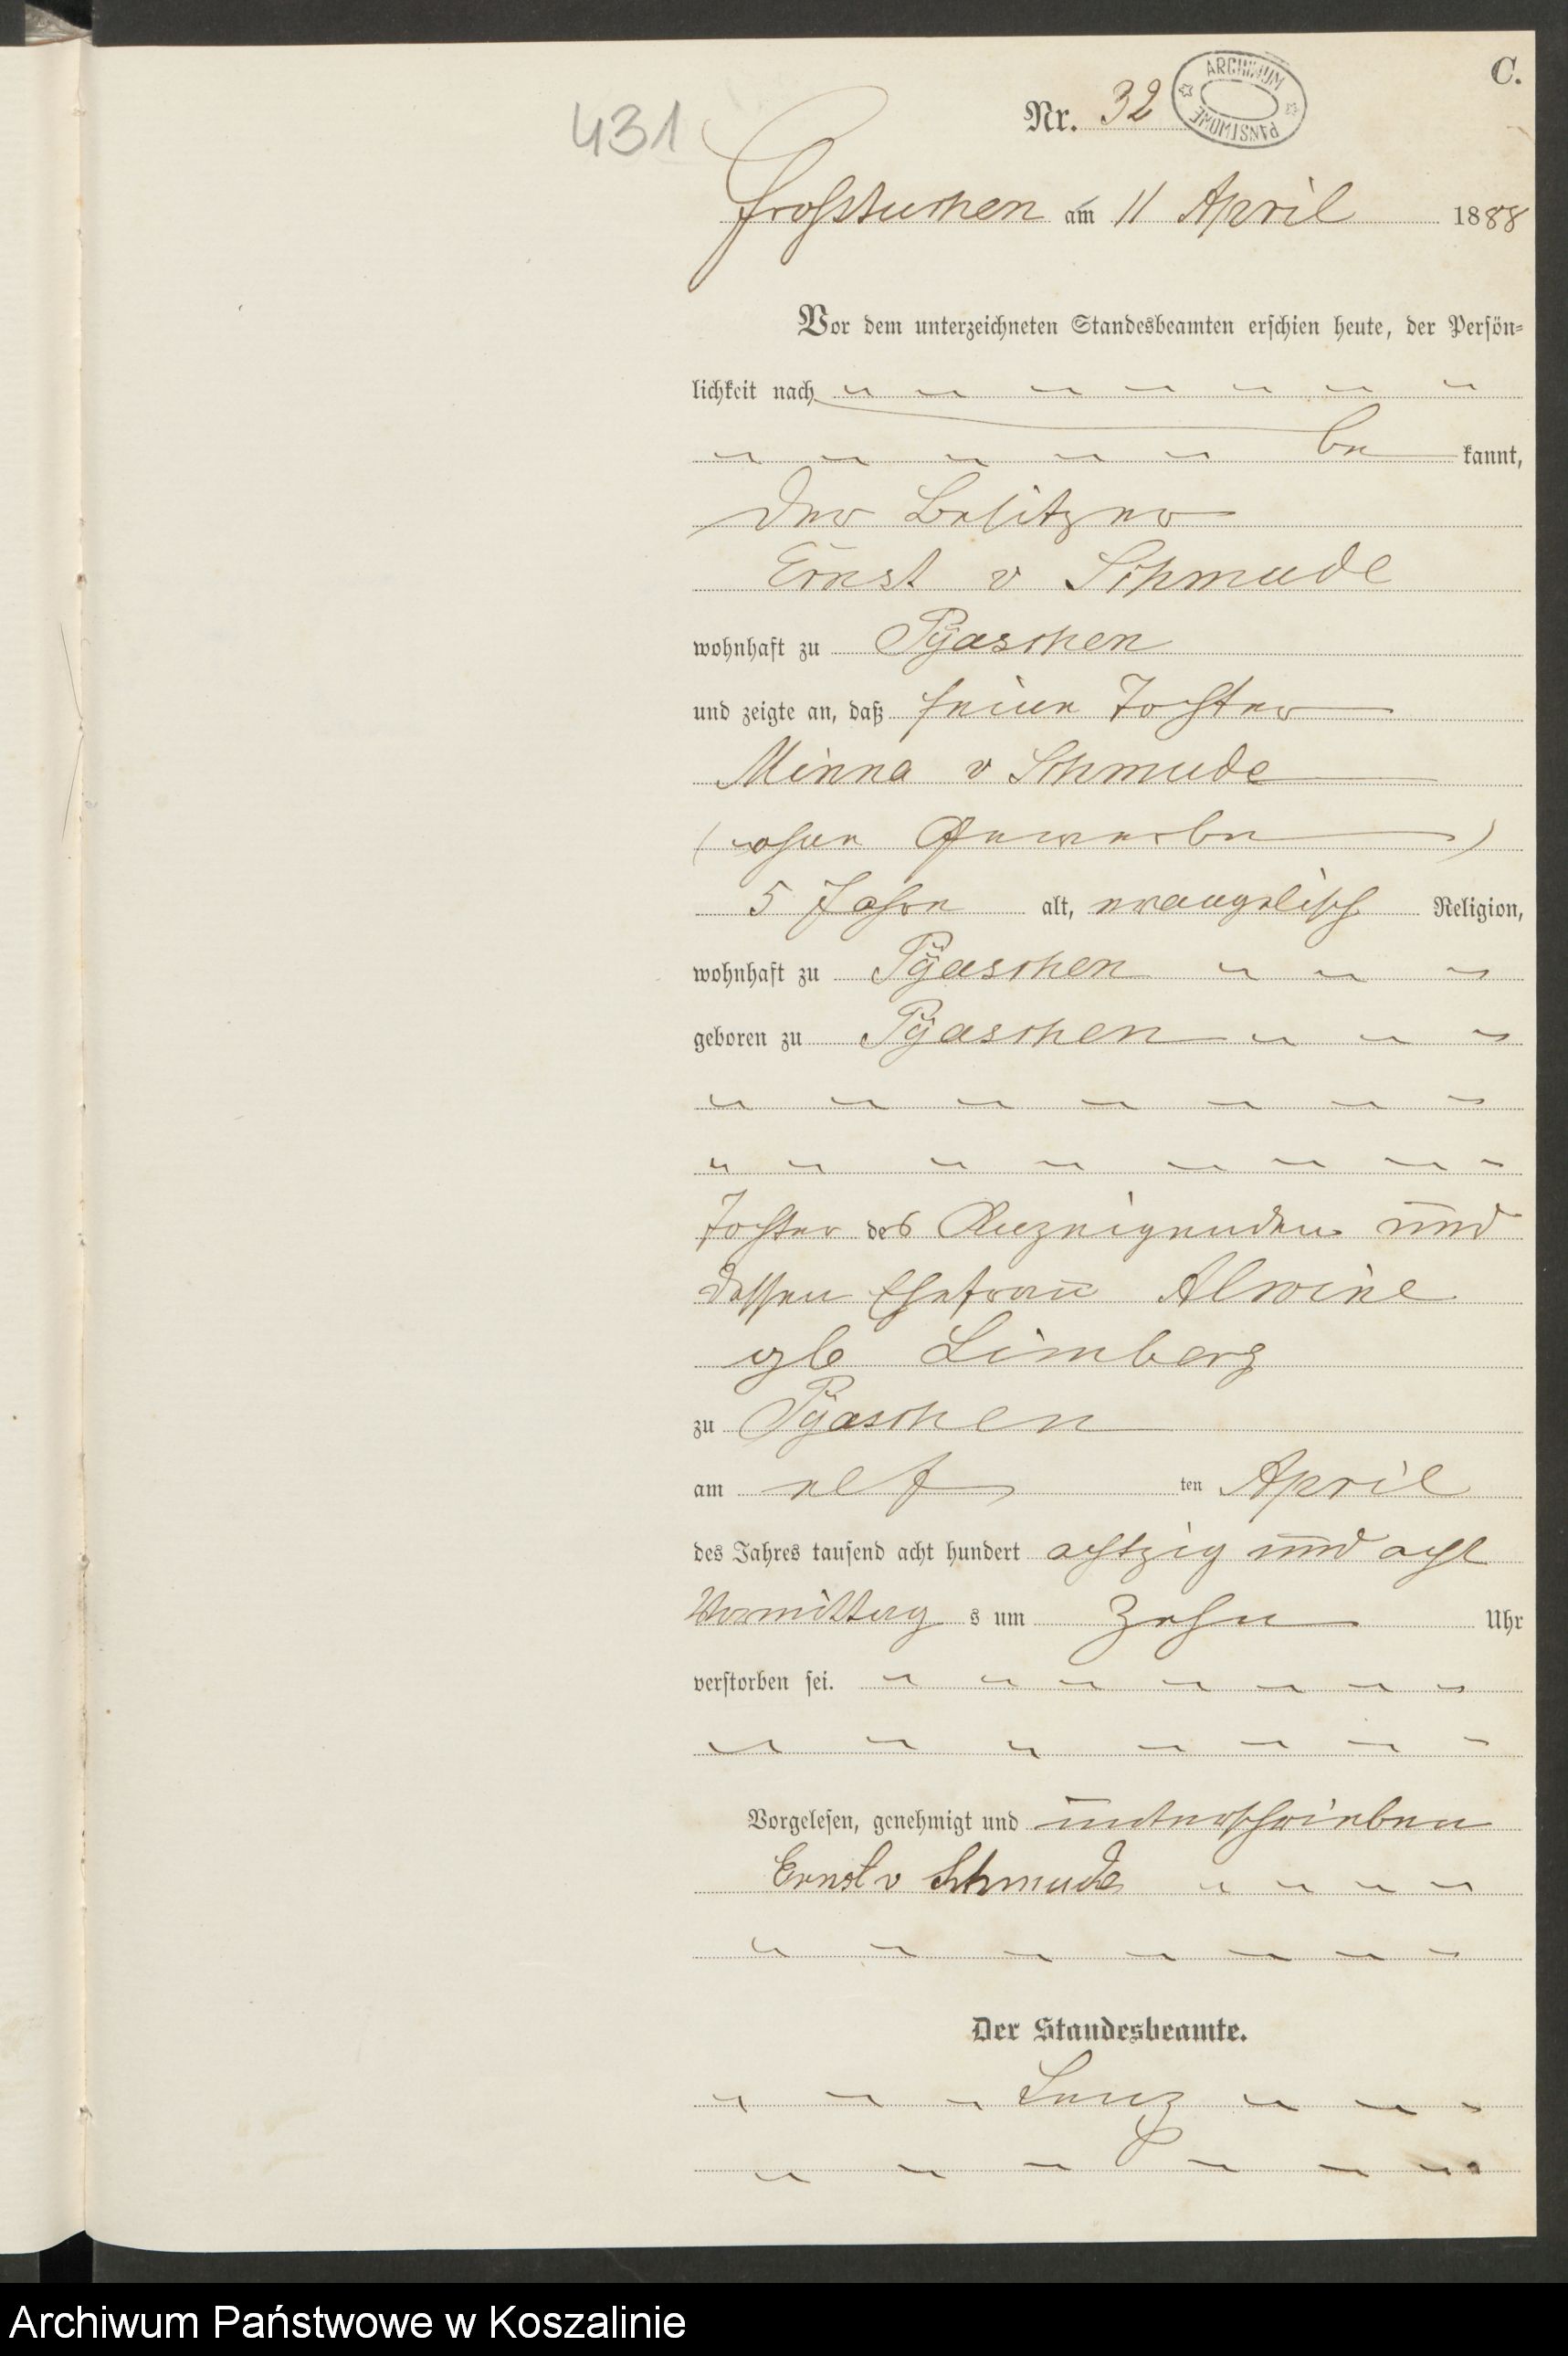 C.
ARCHIWUM PAŃSTWOWE
Nr. 32
431
Großtuchen am 11 April 1888
Vor dem unterzeichneten Standesbeamten erschien heute, der Persön=
lichkeit nach
be kannt,
der Besitzer
Ernst v Schmude
wohnhaft zu Pÿaschen
und zeigte an, daß seine Tochter
Minna v Schmude
(ohne Gewerbe)
5 Jahre alt, evangelisch Religion,
wohnhaft zu Pÿaschen
geboren zu Pÿaschen
Tochter des Anzeigenden und
dessen Ehefrau Alwine
gb Limberg
zu Pÿaschen
am elf ten April
des Jahres tausend acht hundert achtzig und acht
Vormittag s um zehn Uhr
verstorben sei.
Vorgelesen, genehmigt und unterschrieben
Ernst v Schmude
Der Standesbeamte.
Archiwum Państwowe w Koszalinie